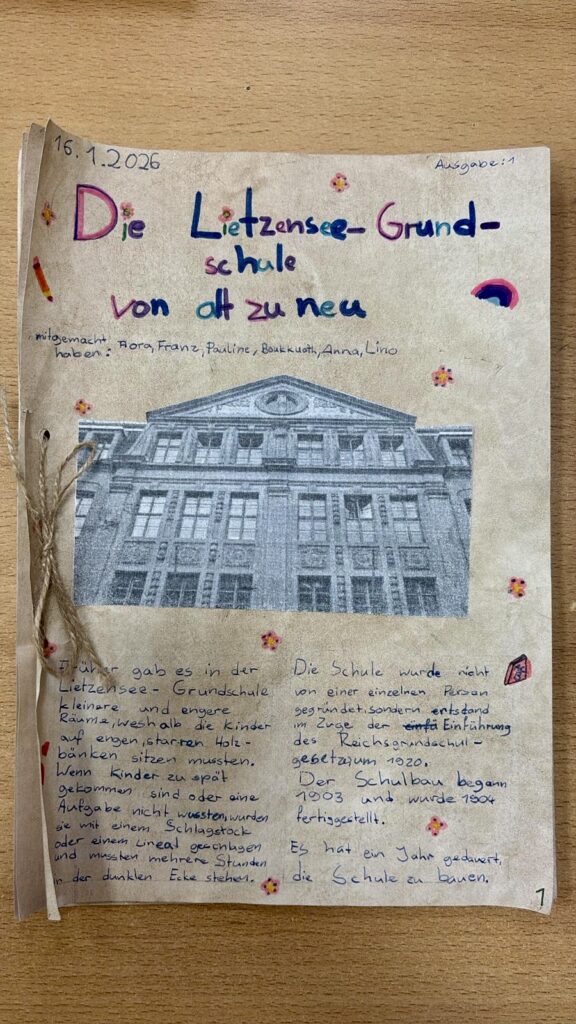 16.1.2026
Ausgabe:1
Die Lietzensee-Grund-
schule
von alt zu neu
mitgemacht
haben: Flora, Franz, Pauline, Anna, Lino
Früher gab es in der
Lietzensee-Grundschule
kleinere und engere
Räume, weshalb die Kinder
auf engen, starren Holz-
bänken sitzen mussten.
Wenn Kinder zu spät
gekommen sind oder eine
Aufgabe nicht wussten, wurden
sie mit einem Schlagstock
oder einem Lineal geschlagen
und mussten mehrere Stunden
in der dunklen Ecke stehen.
Die Schule wurde nicht
von einer einzelnen Person
gegründet, sondern entstand
im Zuge der Einführung
des Reichsgrundschul-
gesetz um 1920.
Der Schulbau begann
1903 und wurde 1904
fertiggestellt.
Es hat ein Jahr gedauert,
die Schule zu bauen.
1